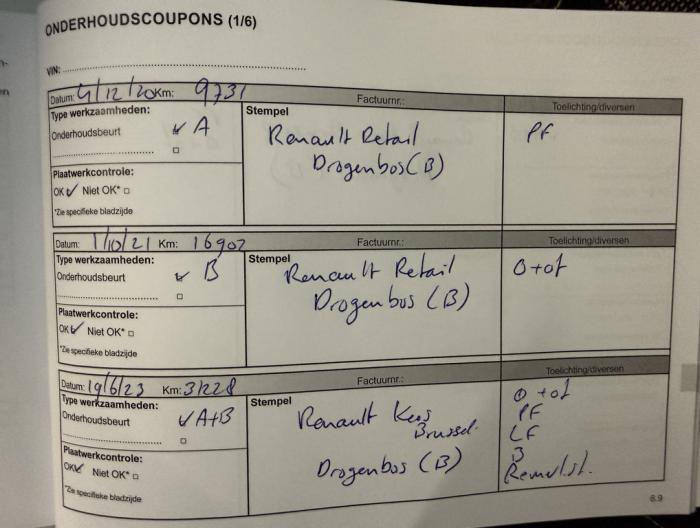 ONDERHOUDSCOUPONS (1/6)
VIN:
Datum: 4/12/20 Km: 9731 Factuurnr.: Toelichting/diversen
Type werkzaamheden: Stempel
Onderhoudsbeurt A Renault Retail PF
Drogenbos (B)
Plaatwerkcontrole:
OK Niet OK*
*Zie specifieke bladzijde
Datum: 1/10/21 Km: 16902 Factuurnr.: Toelichting/diversen
Type werkzaamheden: Stempel
Onderhoudsbeurt B Renault Retail O+of
Drogenbos (B)
Plaatwerkcontrole:
OK Niet OK*
*Zie specifieke bladzijde
Datum: 19/6/23 Km: 31228 Factuurnr.: Toelichting/diversen
Type werkzaamheden: Stempel O+of
Onderhoudsbeurt A+B Renault PF
Brussel. LF
Plaatwerkcontrole: B
OK Niet OK* Drogenbos (B)
*Zie specifieke bladzijde
6.9